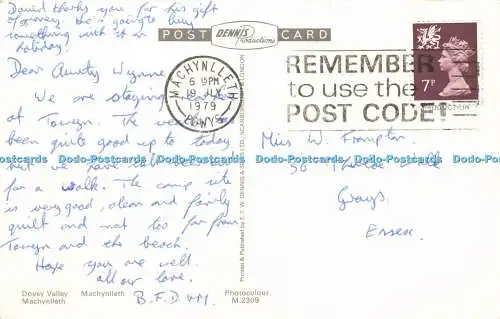 David thanks you for his gift
of money. He's going to buy
something with it on
holiday!
POST DENNIS Productions CARD
Dear Aunty Wynne,
We are staying
at Towyn. The
quite good up to today
but we
for a walk. The camp site
is very good, clean and fairly
quiet and not too far from
Towyn and the beach.
Hope you are well.
all our love.
B.F.D
MACHYNLLETH
6 15PM
19 JLY
1979
POWYS
REMEMBER
to use the
POST CODE!
7P
Miss W. Frampton,
Grays
Essex.
Printed & Published by E.T.W. DENNIS & SONS LTD., SCARBOROUGH & LONDON
Dovey Valley Machynlleth
Machynlleth
Photocolour
M.2309
Dodo-Postcards Dodo-Postcards Dodo-Postcards Dodo-Postcards Dodo-Postcards